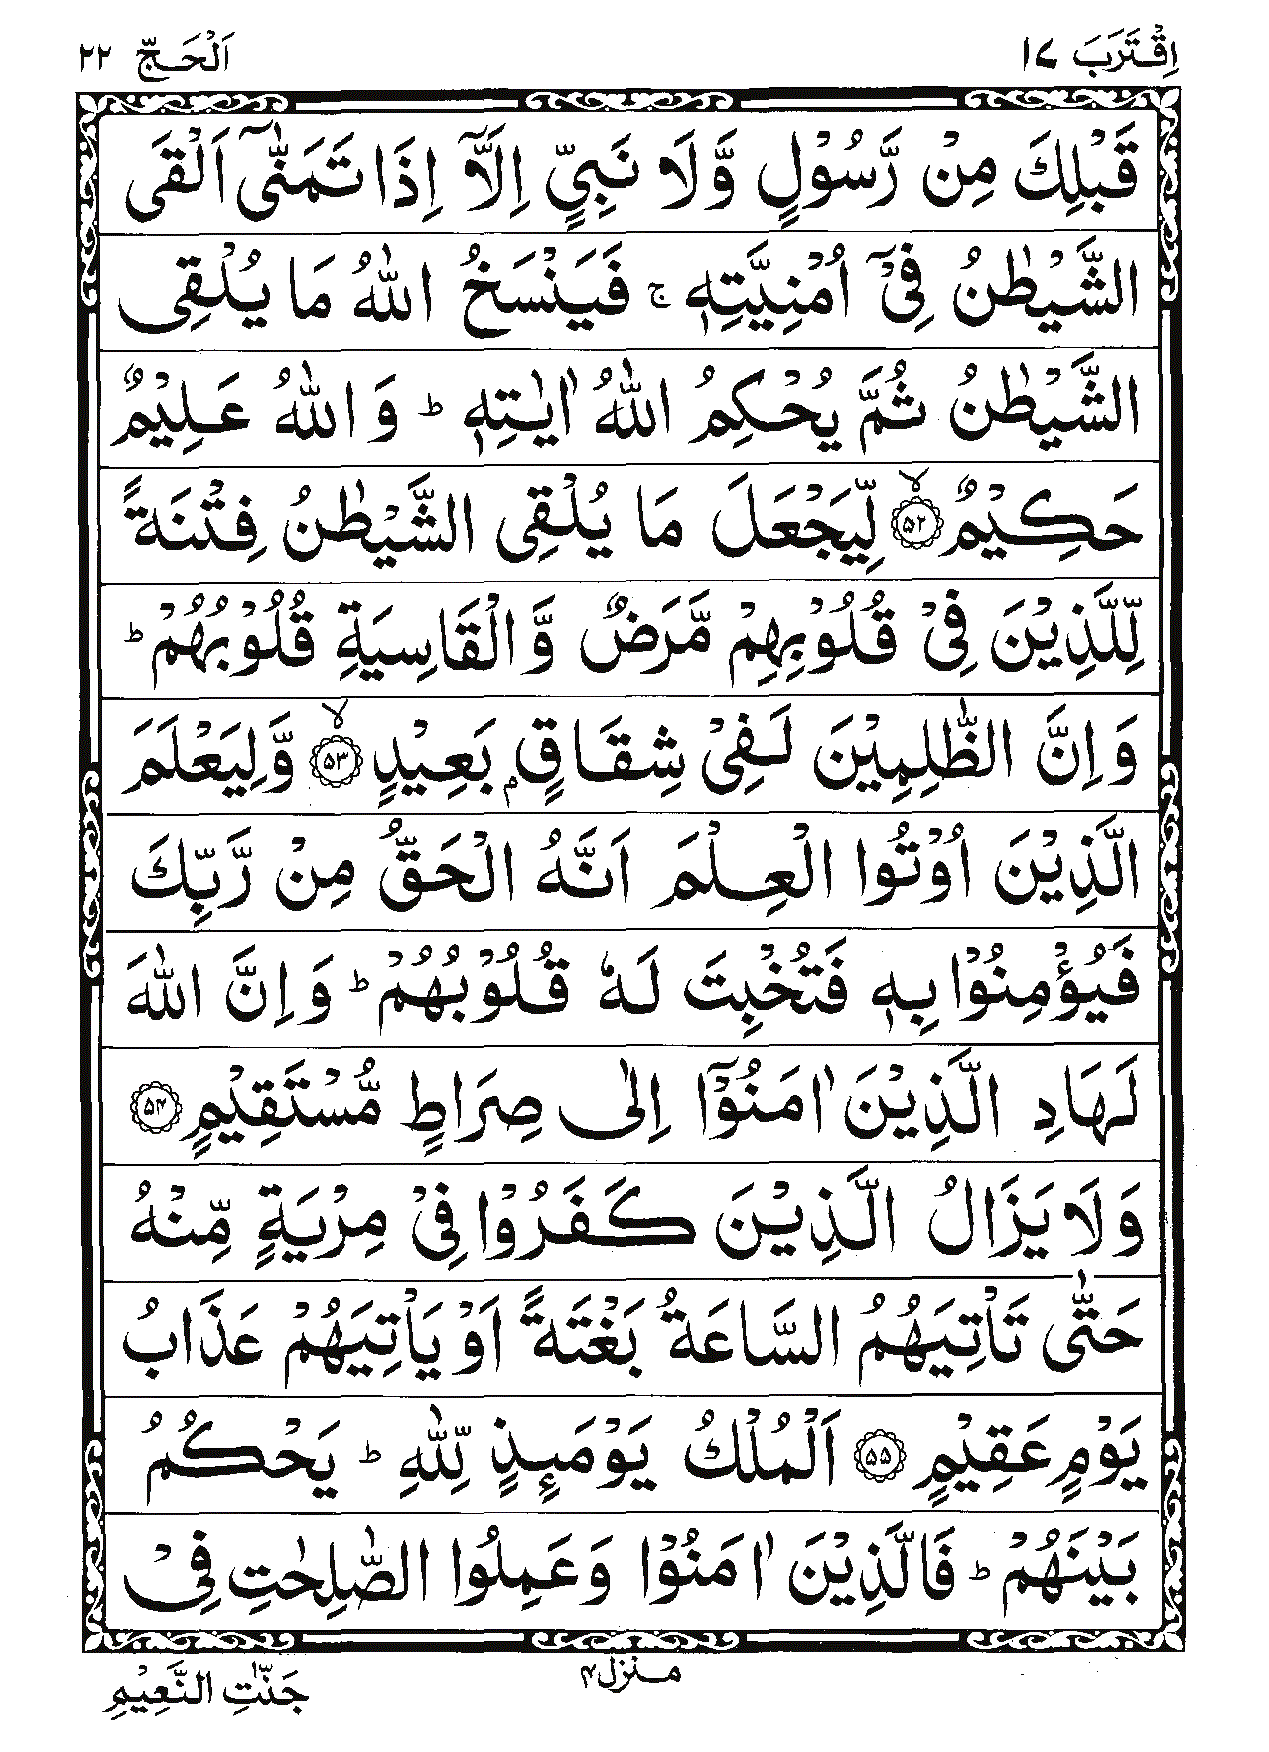 اِقْتَرَبَ ١٧
اَلْحَجّ ٢٢
قَبْلِكَ مِنْ رَّسُوْلٍ وَّلَا نَبِيٍّ اِلَّاۤ اِذَا تَمَنّٰۤى اَلْقَى
الشَّيْطٰنُ فِيْۤ اُمْنِيَّتِهٖ ۚ فَيَنْسَخُ اللّٰهُ مَا يُلْقِى
الشَّيْطٰنُ ثُمَّ يُحْكِمُ اللّٰهُ اٰيٰتِهٖ ؕ وَ اللّٰهُ عَلِيْمٌ
حَكِيْمٌ ۙ‏﴿۵۲﴾ لِّيَجْعَلَ مَا يُلْقِى الشَّيْطٰنُ فِتْنَةً
لِّلَّذِيْنَ فِيْ قُلُوْبِهِمْ مَّرَضٌ وَّ الْقَاسِيَةِ قُلُوْبُهُمْ ؕ
وَ اِنَّ الظّٰلِمِيْنَ لَفِيْ شِقَاقٍۭ بَعِيْدٍ ۙ‏﴿۵۳﴾ وَّلِيَعْلَمَ
الَّذِيْنَ اُوْتُوا الْعِلْمَ اَنَّهُ الْحَقُّ مِنْ رَّبِّكَ
فَيُؤْمِنُوْا بِهٖ فَتُخْبِتَ لَهٗ قُلُوْبُهُمْ ؕ وَ اِنَّ اللّٰهَ
لَهَادِ الَّذِيْنَ اٰمَنُوْۤا اِلٰى صِرَاطٍ مُّسْتَقِيْمٍ ﴿۵۴﴾
وَلَا يَزَالُ الَّذِيْنَ كَفَرُوْا فِيْ مِرْيَةٍ مِّنْهُ
حَتّٰى تَاْتِيَهُمُ السَّاعَةُ بَغْتَةً اَوْ يَاْتِيَهُمْ عَذَابُ
يَوْمٍ عَقِيْمٍ ﴿۵۵﴾ اَلْمُلْكُ يَوْمَىِٕذٍ لِّلّٰهِ ؕ يَحْكُمُ
بَيْنَهُمْ ؕ فَالَّذِيْنَ اٰمَنُوْا وَعَمِلُوا الصّٰلِحٰتِ فِيْ
منزل ۴
جَنّٰتِ النَّعِيْمِ